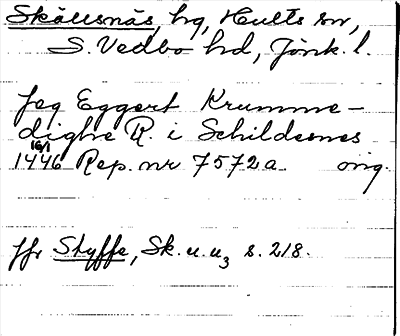 Skällsnäs, hg, Hults sn,
S. Vedbo hd, Jönk. l.
Jeg Eggert Krumme-
dighe R. i Schildesnes
16/1
1446 Rep. nr 7572a orig.
jfr Styffe, Sk. u. u3 s. 218.